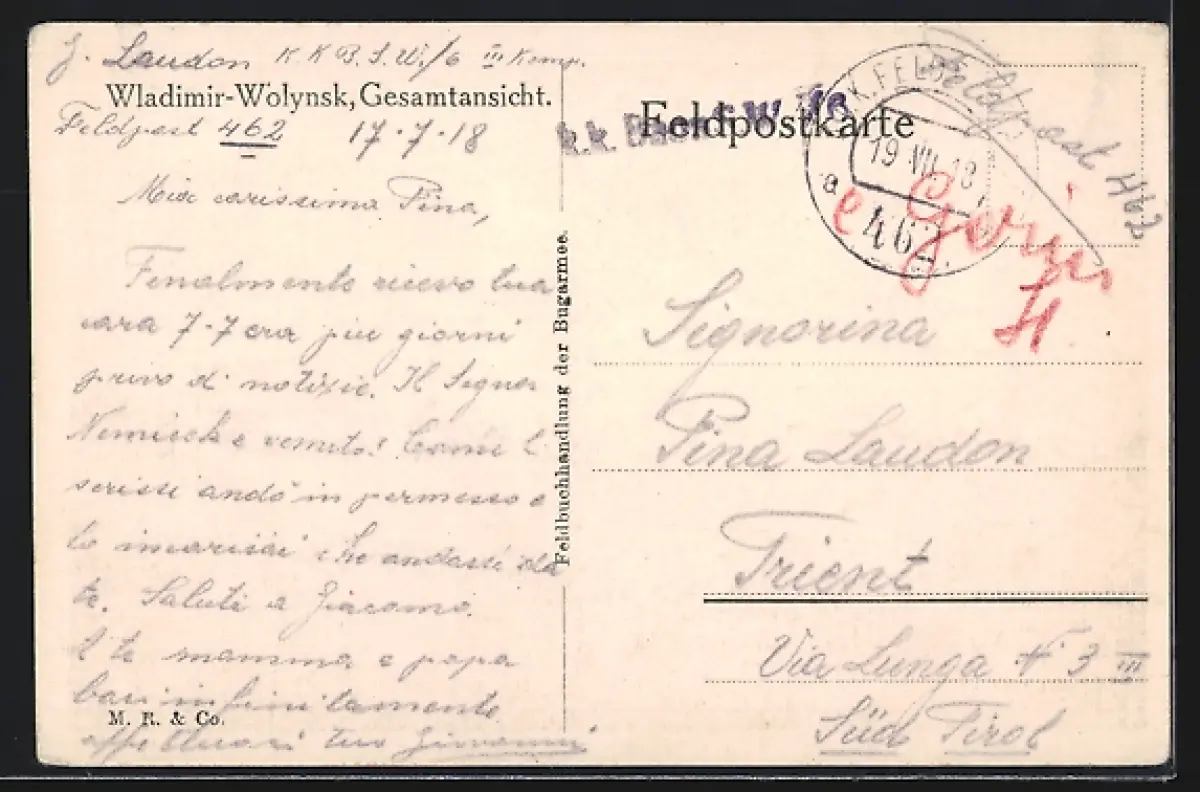 G. Laudon K.K.B.S.W./6 III Komp.
Wladimir-Wolynsk, Gesamtansicht.
Feldpost 462 17-7-18
Mia carissima Pina,
Finalmente ricevo tua
cara 7-7 era piu giorni
privo di notizie. Il Signor
venuto!
scrissi andò in permesso e
che da
te. Saluti a Giacomo.
E te mamma e papa
baci infinitamente
tuo Giovanni
M. R. & Co.
Feldbuchhandlung der Bugarmee.
Feldpostkarte
k.k.
K.FELD
19 VII 18
a
462
Feldpost 462
Signorina
Pina Laudon
Trient
Via Lunga N 3 III
Süd Tirol